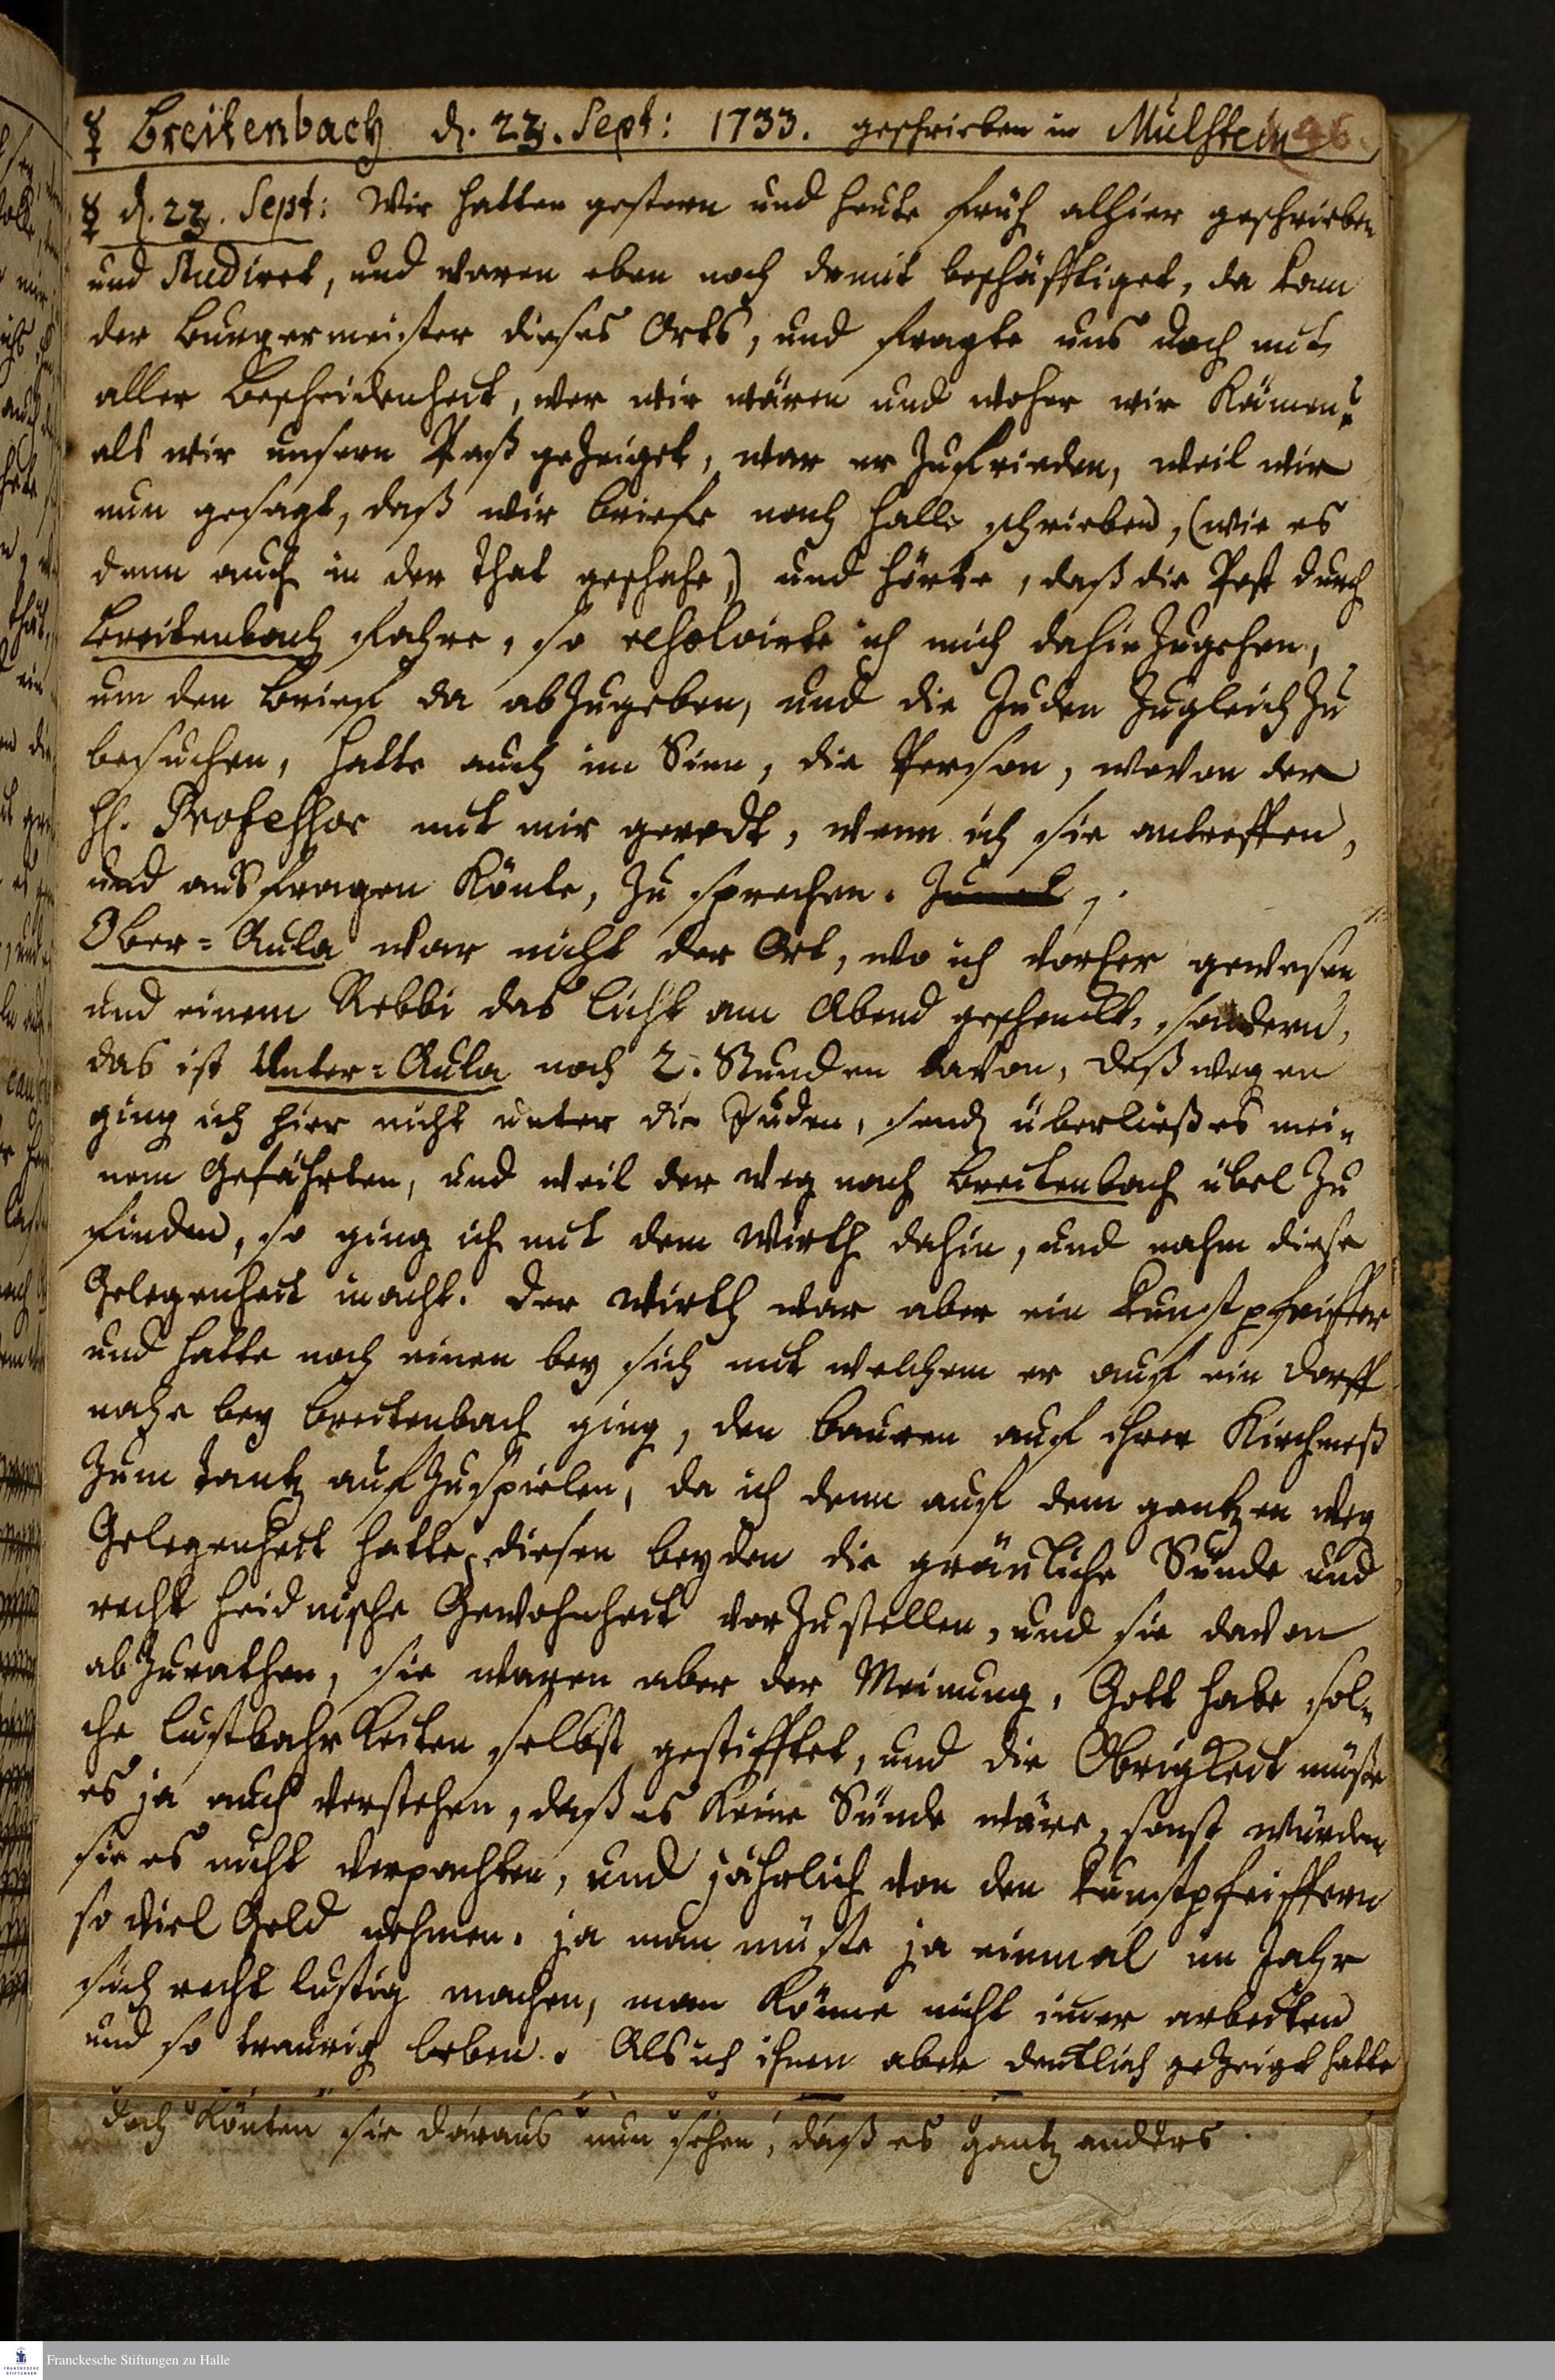 ☿ Breitenbach d. 23. Sept: 1733. geschrieben in Mülstein 46.
☿ d. 23. Sept: Wir hatten gestern und heute früh alhier geschrieben
und Studiret, und waren eben noch damit beschäfftiget, da kam
der Burgermeister dieses Orts, und fragte uns doch mit
aller Bescheidenheit, wer wir wären und woher wir kämen?
als wir unsern Paß gezeiget, war er zufrieden, weil wir
nun gesagt, daß wir briefe nach Halle schrieben, (wie es
denn auch in der That geschahe,) und hörte, daß die Post durch
Breitenbach fahre, so resolvirte ich mich dahin zugehen,
um den brief da abzugeben, und die Juden zugleich zu
besuchen, hatte auch im Sinn, die Person, wovon der
H. Professor mit mir geredt, wenn ich sie antreffen,
und ausfragen könte, zu sprechen.
Ober=Aula war nicht der Ort, wo ich vorher gewesen
und einem Rebbi das licht am Abend geschenckt, sondern,
das ist Unter=Aula noch 2. Stunden davon, deßwegen
ging ich hier nicht unter die Juden, sond. überließ es mei=
nem Gefährten, und weil der Weg nach Breitenbach übel zu
finden, so ging ich mit dem Wirth dahin, und nahm diese
Gelegenheit in acht. Der Wirth war aber ein Kunstpfeiffer
und hatte noch einen bey sich mit welchem er auf ein Dorff
nahe bey Breitenbach ging, den bauren auf ihrer Kirchmeß
zum tantz aufzuspielen, da ich denn auf dem gantzen weg
Gelegenheit hatte, diesen beyden die gräuliche Sünde und
recht heidnische Gewohnheit vorzustellen, und sie davon
abzurathen, sie waren aber der Meinung, Gott habe sol=
che lustbahrkeiten selbst gestifftet, und die Obrigkeit müße
es ja auch verstehen, daß es keine Sünde wäre, sonst würden
sie es nicht verpachten, und jährlich von den Kunstpfeiffern
so viel Geld nehmen. ja man müste ja einmal im Jahr
sich recht lustig machen, man könne nicht im̃er arbeiten
und so traurig leben. Als ich ihnen aber deutlich gezeigt hatte
doch könten sie daraus nun sehen, daß es gantz anders
Franckesche Stiftungen zu Halle